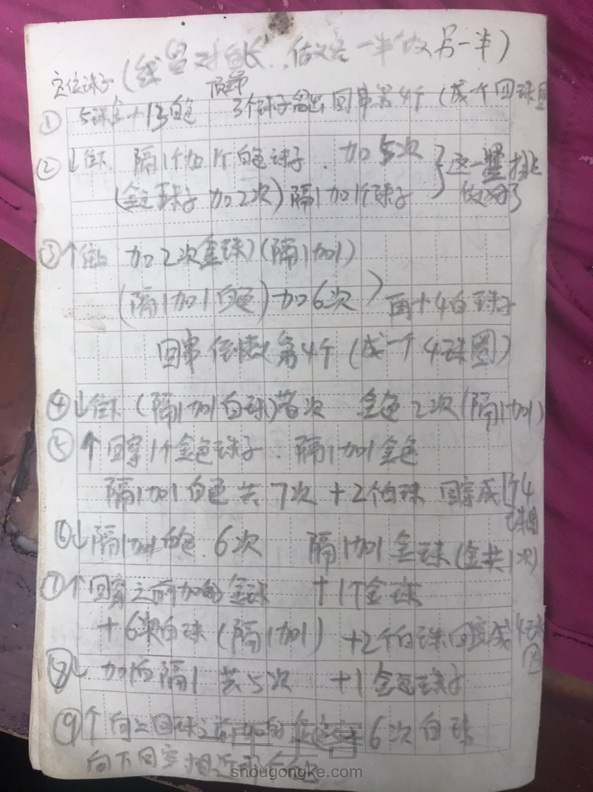 (线留对折长 做完一半做另一半)
定位珠子 顶部
① 5珠金+13白色 3个珠子当 回串第4个 (成一个回珠圈
② ↓往下 隔1个加1个白色珠子. 加5次 } 这一竖排
(金色珠子加2次)隔1加1个珠子 做好了
③ ↑往上 加2次金珠)(隔1加1)
(隔1加1白色)加6次) 再+4白珠子
回串倒数第4个(成一个4珠圈)
④ ↓往下(隔1加1白珠) 金色2次(隔1加1)
⑤ ↑回穿1个金色珠子. 隔1加1金色
隔1加1白色共7次+2个白珠 回穿成1个4
珠圈
⑥ ↓隔1加1白色. 6次 隔1加1金珠(金共1次)
⑦ ↑回穿之前加的金珠 +1个金珠
+6次白珠(隔1加1) +2个白珠回穿成4珠
圈
⑧ ↓加白隔1 共5次 +1金色珠子
⑨ ↑向上回珠之前加的金色 6次白珠
向下回穿相近
shougongke.com